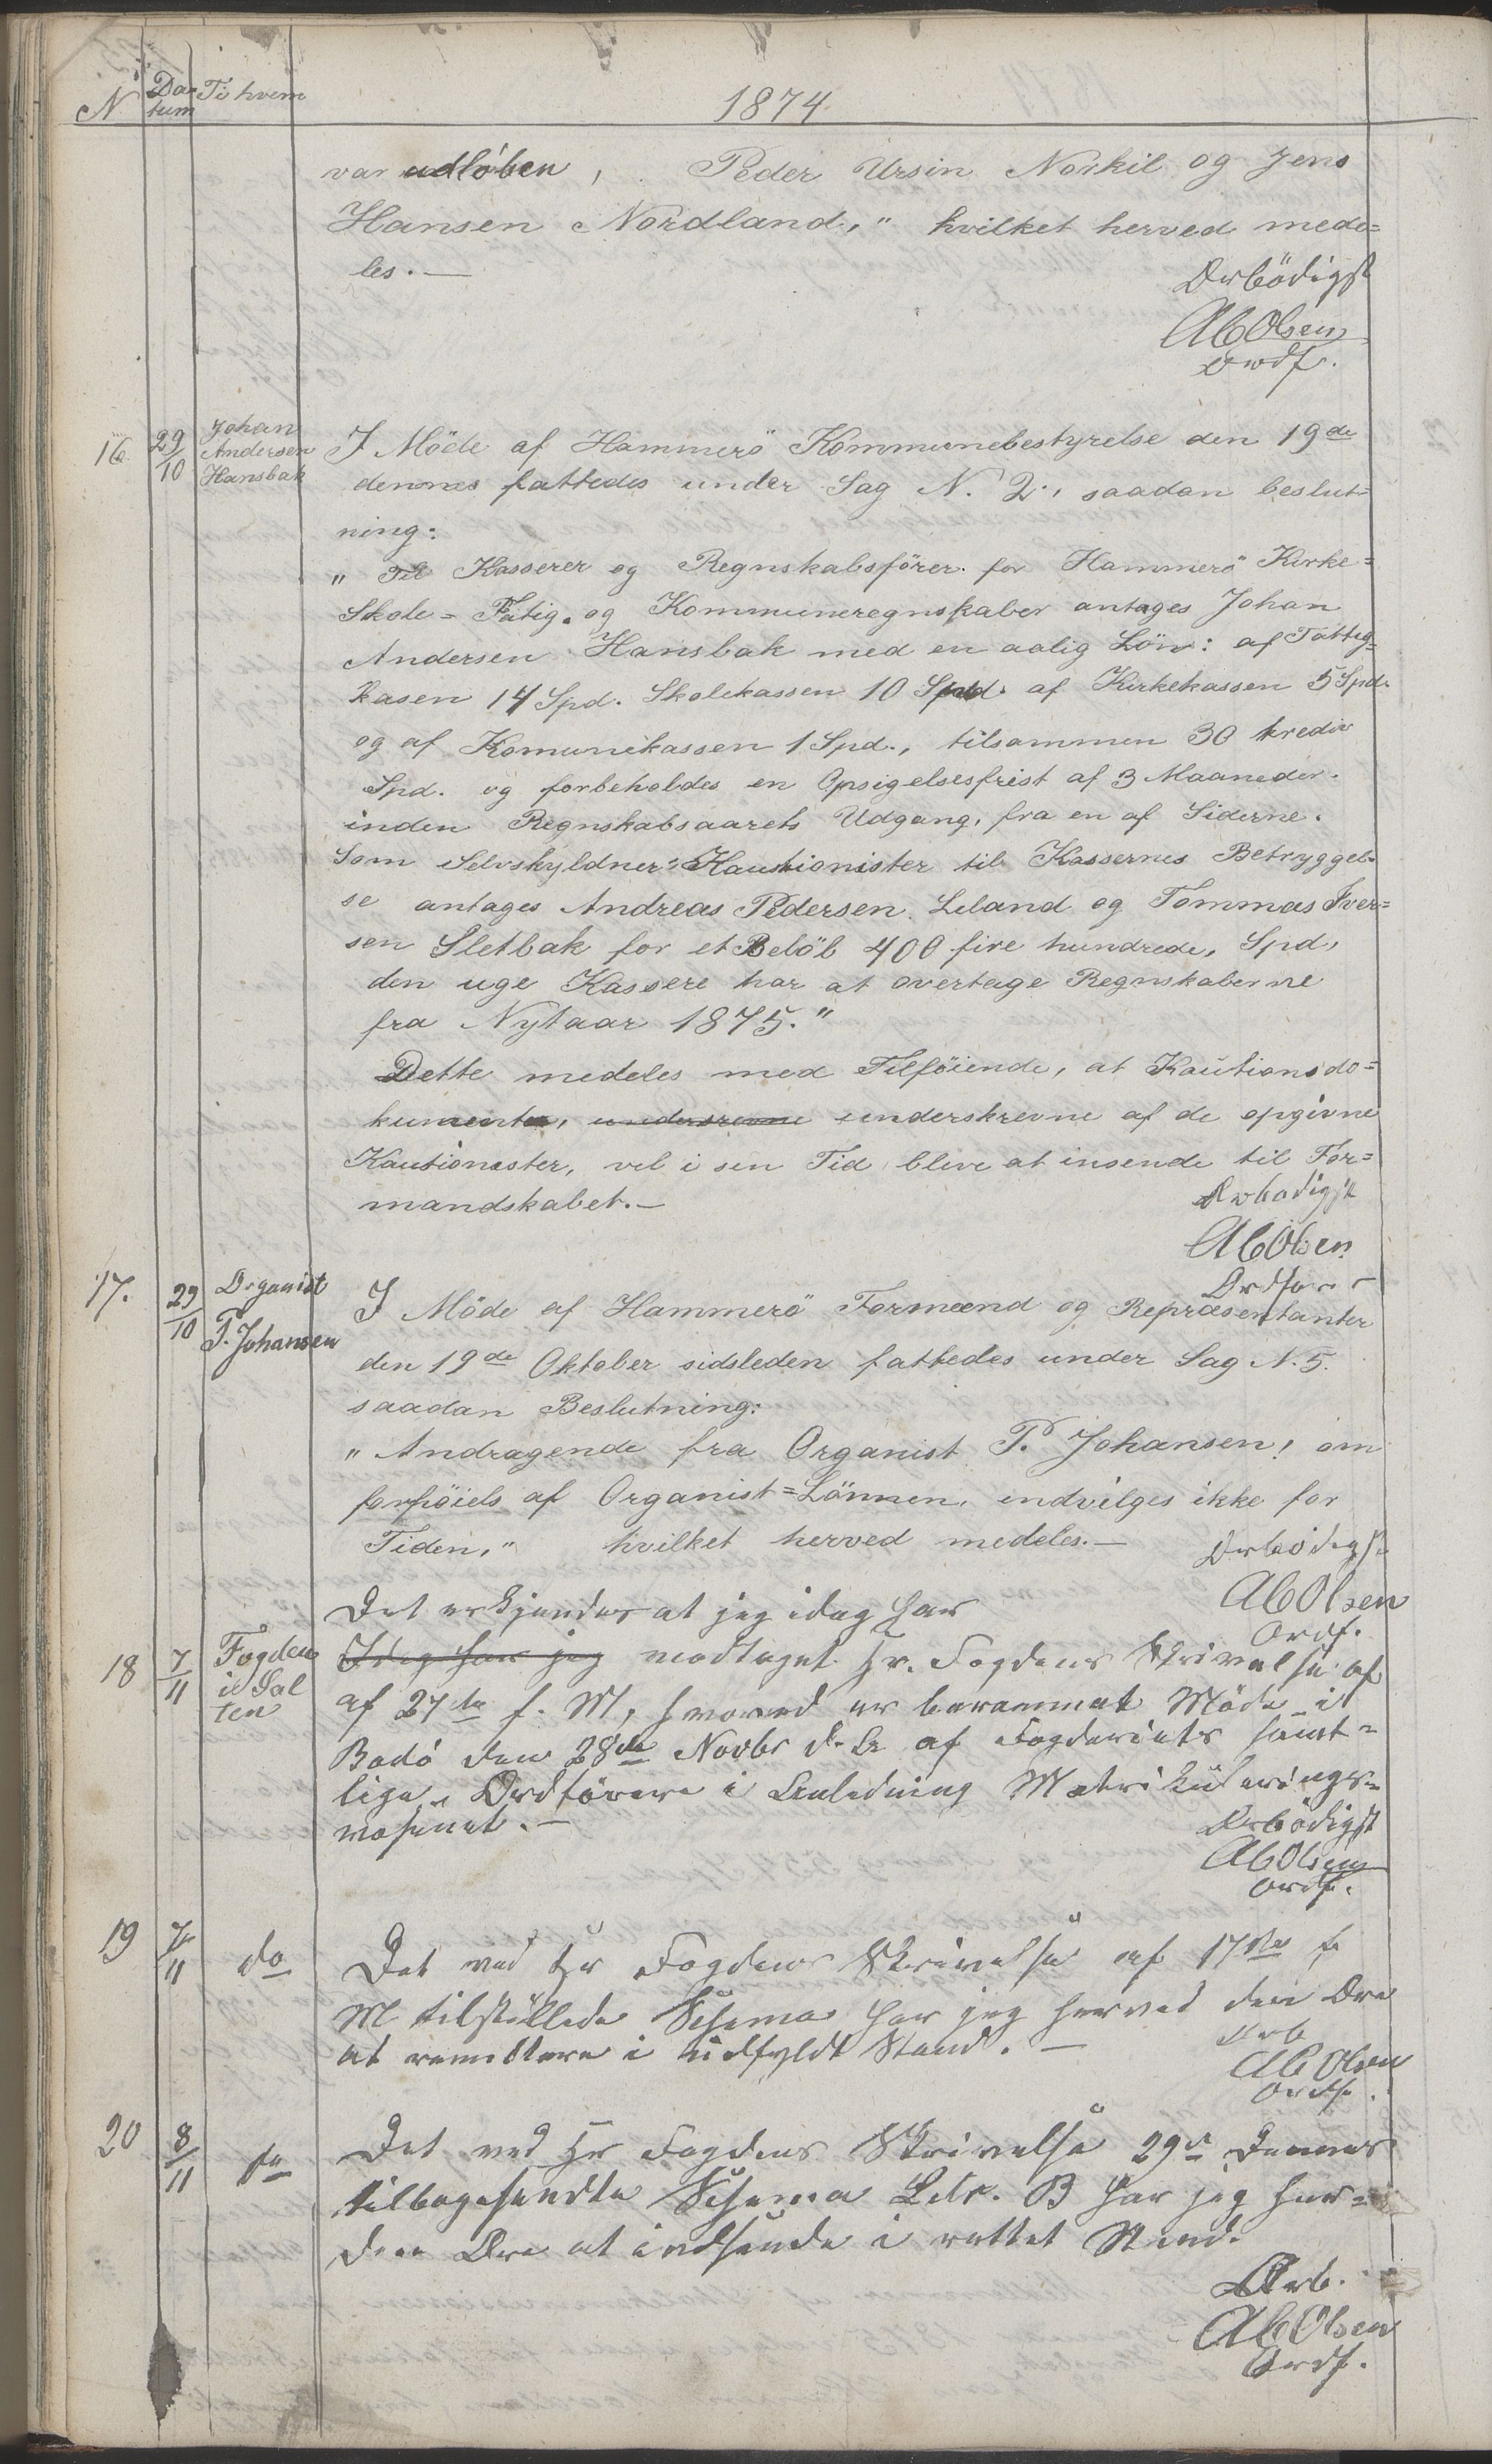 N Da= Ti hvem
tum
1874
var udlöben, Peder Ursin Norkil og Jens
Hansen Nordland," hvilket herved mede=
les. —
Ærbödigst
AbOlsen
Ordf.
16 29/10 Johan
Andersen
Hansbak
I Möde af Hammerö Kommunebestyrelse den 19de
dennes fattedes under Sag N. 2, saadan beslut=
ning:
" Til Kasserer og Regnskabsförer for Hammerö Kirke=
Skole= Fatig. og Kommuneregnskaber antages Johan
Andersen Hansbak med en aalig Lön: af Fattig=
kasen 14 Spd. Skolekassen 10 Spd. af Kirkekassen 5 Spd.
og af Komunekassen 1 Spd., tilsammen 30 trediv
Spd. og forbeholdes en Opsigelsesfrist af 3 Maaneder.
inden Regnskabsaarets Udgang, fra en af Siderne.
Som Selvskyldner=Kautionister til Kassernes Betryggel=
se antages Andreas Pedersen Leland og Tommas Iver=
sen Sletbak for et Belöb 400 fire hundrede, Spd,
den uge Kassere har at overtage Regnskaberne
fra Nytaar 1875."
Dette medeles med Tilföiende, at Kautionsdo=
kumenter, undersrevne underskrevne af de opgivne
Kautionester, vel i sen Tid bleve at insende til For=
mandskabet. —
Ærbödigst
AbOlsen
Ordförer
17. 29/10 Organist
P. Johansen
I Möde af Hammerö Formænd og Repræsentanter
den 19de Oktober sidsleden fattedes under Sag N. 5.
saadan Beslutning:
" Andragende fra Organist P. Johansen, om
forhöiels af Organist=Lönnen, indvilges ikke for
Tiden," hvilket herved medeles. —
Ærbödigst
AbOlsen
Ordf.
Det erkjendes at jeg idag har
18 7/11 Fogden
i Sal
ten
Idag har jeg modtaget Hr. Fogdens Skrivelse af
af 27de f. M, hvorved er berammet Möde i
Bodö den 28de Novbr d. A. af Fogderiets samt=
lige Ordförere i Anledning Matrikulerings=
væsenet. —
Ærbödigst
AbOlsen
Ordf.
19 7/11 do
Det ved Hr Fogdens Skrivelse af 17de f.
M tilstillede Schema har jeg herved den Ære
at remittere i udfyldt Stand. —
Ærb
AbOlsen
Ordf.
20 8/11 do
Det ved Hr Fogdens Skrivelse 29de Dennes
tilbagesendte Schema Litr. B har jeg her=
den Ære at indsende i rettet Stand.
Ærb.
AbOlsen
Ordf.